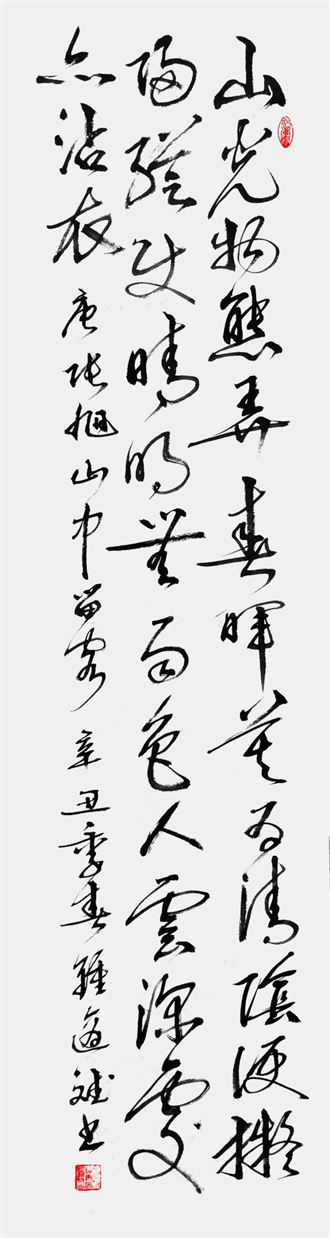 山光物態弄春暉莫為清陰便擬
歸縱使晴明無雨色入雲深處
亦沾衣 唐張旭山中留客 辛丑季春鍾 斌書